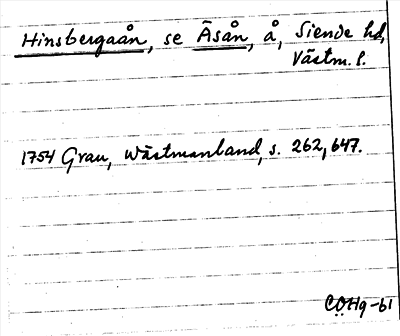 Hinsbergaån, se Åsån, å, Siende hd,
Västm. l.
1754 Grau, Wästmanland, s. 262, 647.
COHg-61